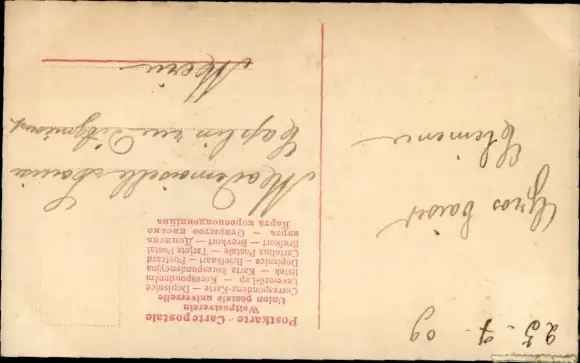 7. 09
Gros baiser
Postkarte – Carte postale
Weltpostverein
Union postale universelle
Correspondenz-Karte – Dopisnice
Levelező-Lap – Korespondenční
lístek – Karta korespondencyjna
Dopisnica – Briefkaart – Postcard
Cartolina Postale – Tarjeta Postal
Brefkort – Brevkort – Дописна
карта – Открытое письмо
Карта кореспонденційна
Mademoiselle Louise
Caplin rue